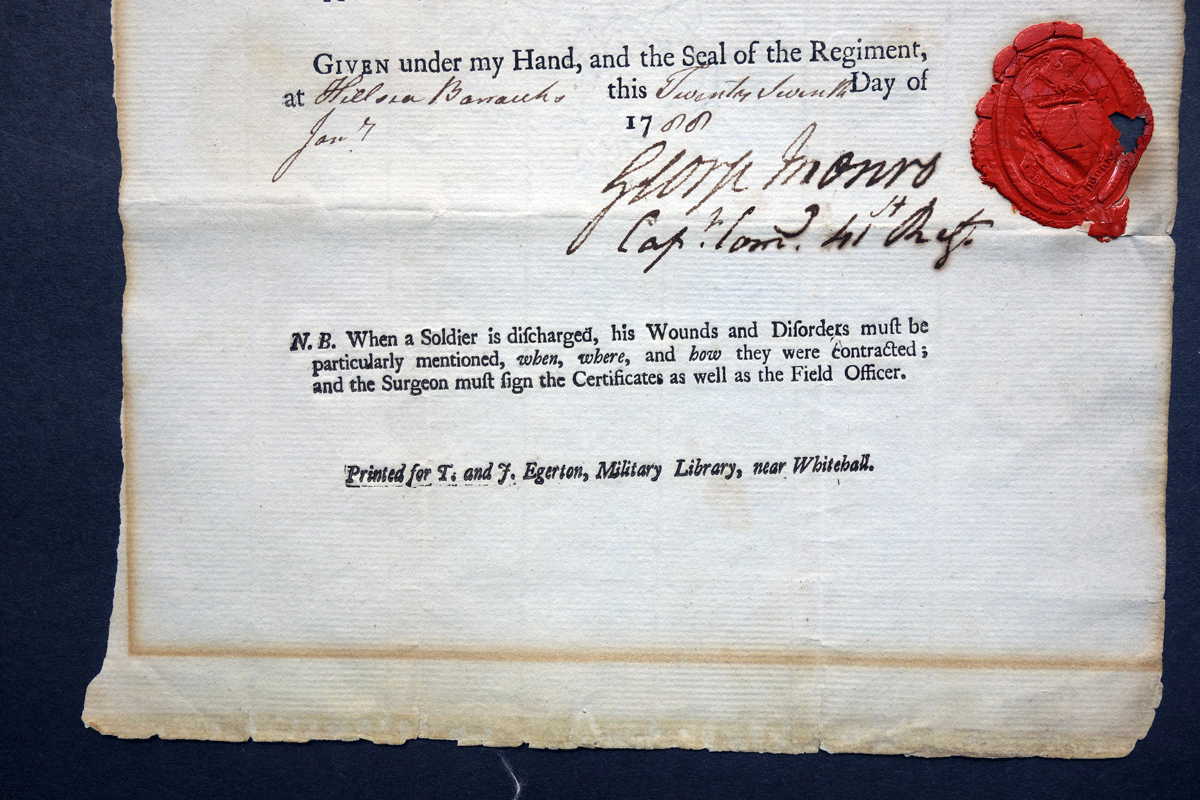 GIVEN under my Hand, and the Seal of the Regiment,
at Hillsea Barracks this Twenty Seventh Day of
Janʸ 1788
George Monro
Capᵗ. Comᵈ. 41ˢᵗ Regᵗ.
N. B. When a Soldier is diſcharged, his Wounds and Diſorders muſt be
particularly mentioned, when, where, and how they were contracted;
and the Surgeon muſt ſign the Certificates as well as the Field Officer.
Printed for T. and J. Egerton, Military Library, near Whitehall.